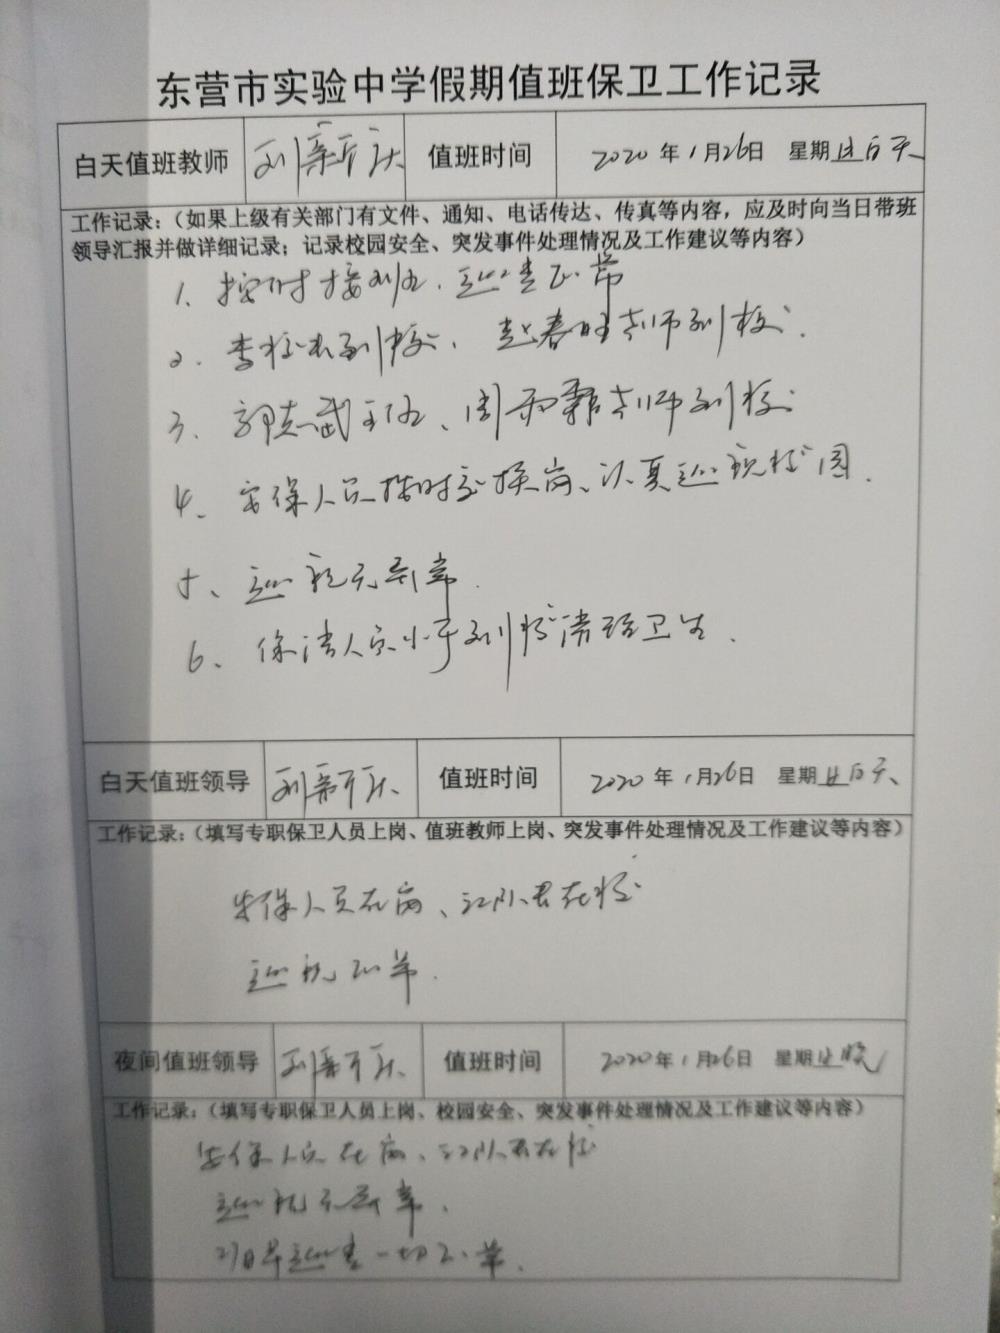 东营市实验中学假期值班保卫工作记录
白天值班教师 刘新庆 值班时间 2020年1月26日 星期日白天
工作记录：（如果上级有关部门有文件、通知、电话传达、传真等内容，应及时向当日带班
领导汇报并做详细记录；记录校园安全、突发事件处理情况及工作建议等内容）
1. 按时接到班，巡查正常
2. 李校长到校、赵春旺老师到校.
3、郭志武主任、周雨霖老师到校
4、安保人员按时交换岗、认真巡视校园.
5、巡视无异常.
6、保洁人员小于到校清理卫生.
白天值班领导 刘新庆 值班时间 2020年1月26日 星期日白天
工作记录：（填写专职保卫人员上岗、值班教师上岗、突发事件处理情况及工作建议等内容）
安保人员在岗、江队君在校
巡视正常.
夜间值班领导 刘新庆 值班时间 2020年1月26日 星期日晚
工作记录：（填写专职保卫人员上岗、校园安全、突发事件处理情况及工作建议等内容）
安保人员在岗、江队君在校
巡视无异常.
27日早巡查一切正常.